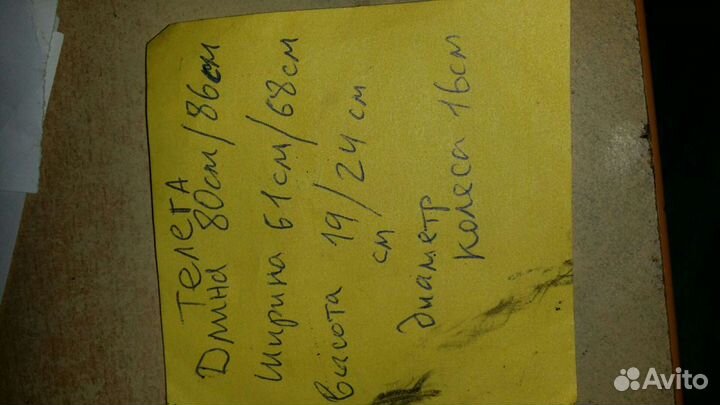 Телега
Длина 80см/86см
Ширина 61см/68см
Высота 19/24см
см
Диаметр
колеса 16см
Avito